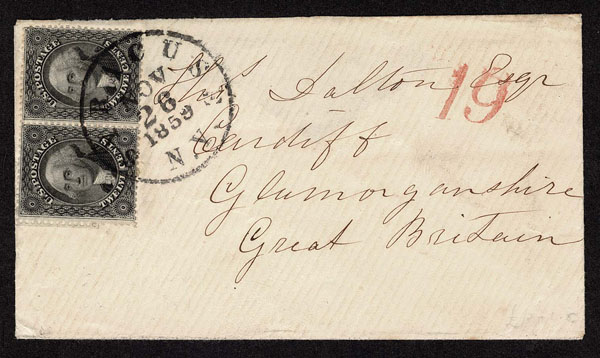 U.S. POSTAGE
TWELVE CENTS
U.S. POSTAGE
TWELVE CENTS
NOV
26
1859
N.Y.
19
Dalton Esqr
Cardiff
Glamorganshire
Great Britain